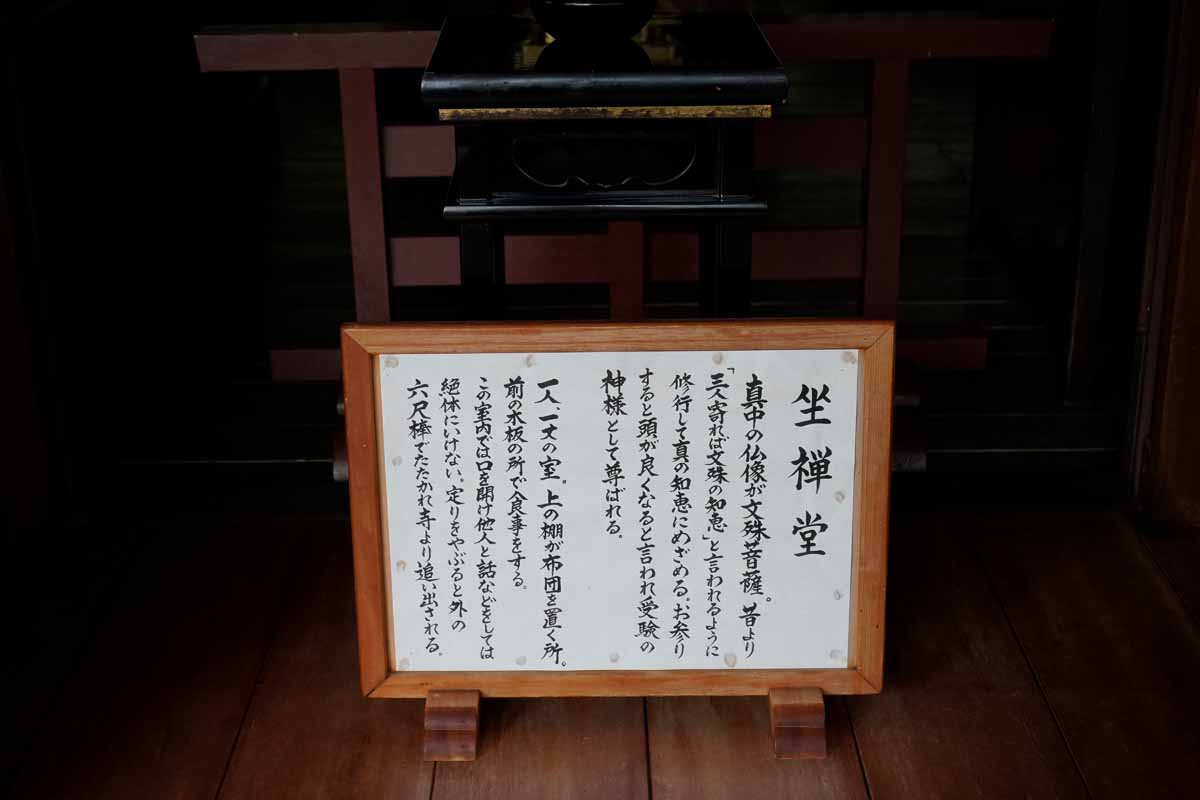 坐禅堂
真中の仏像が文殊菩薩。昔より
「三人寄れば文殊の知恵」と言われるように
修行して真の知恵にめざめる。お参り
すると頭が良くなると言われ受験の
神様として尊ばれる。
一人、一丈の室。上の棚が布団を置く所。
前の木板の所で食事をする。
この室内では口を開け他人と話などをしては
絶体にいけない。定りをやぶると外の
六尺棒でたたかれ寺より追い出される。